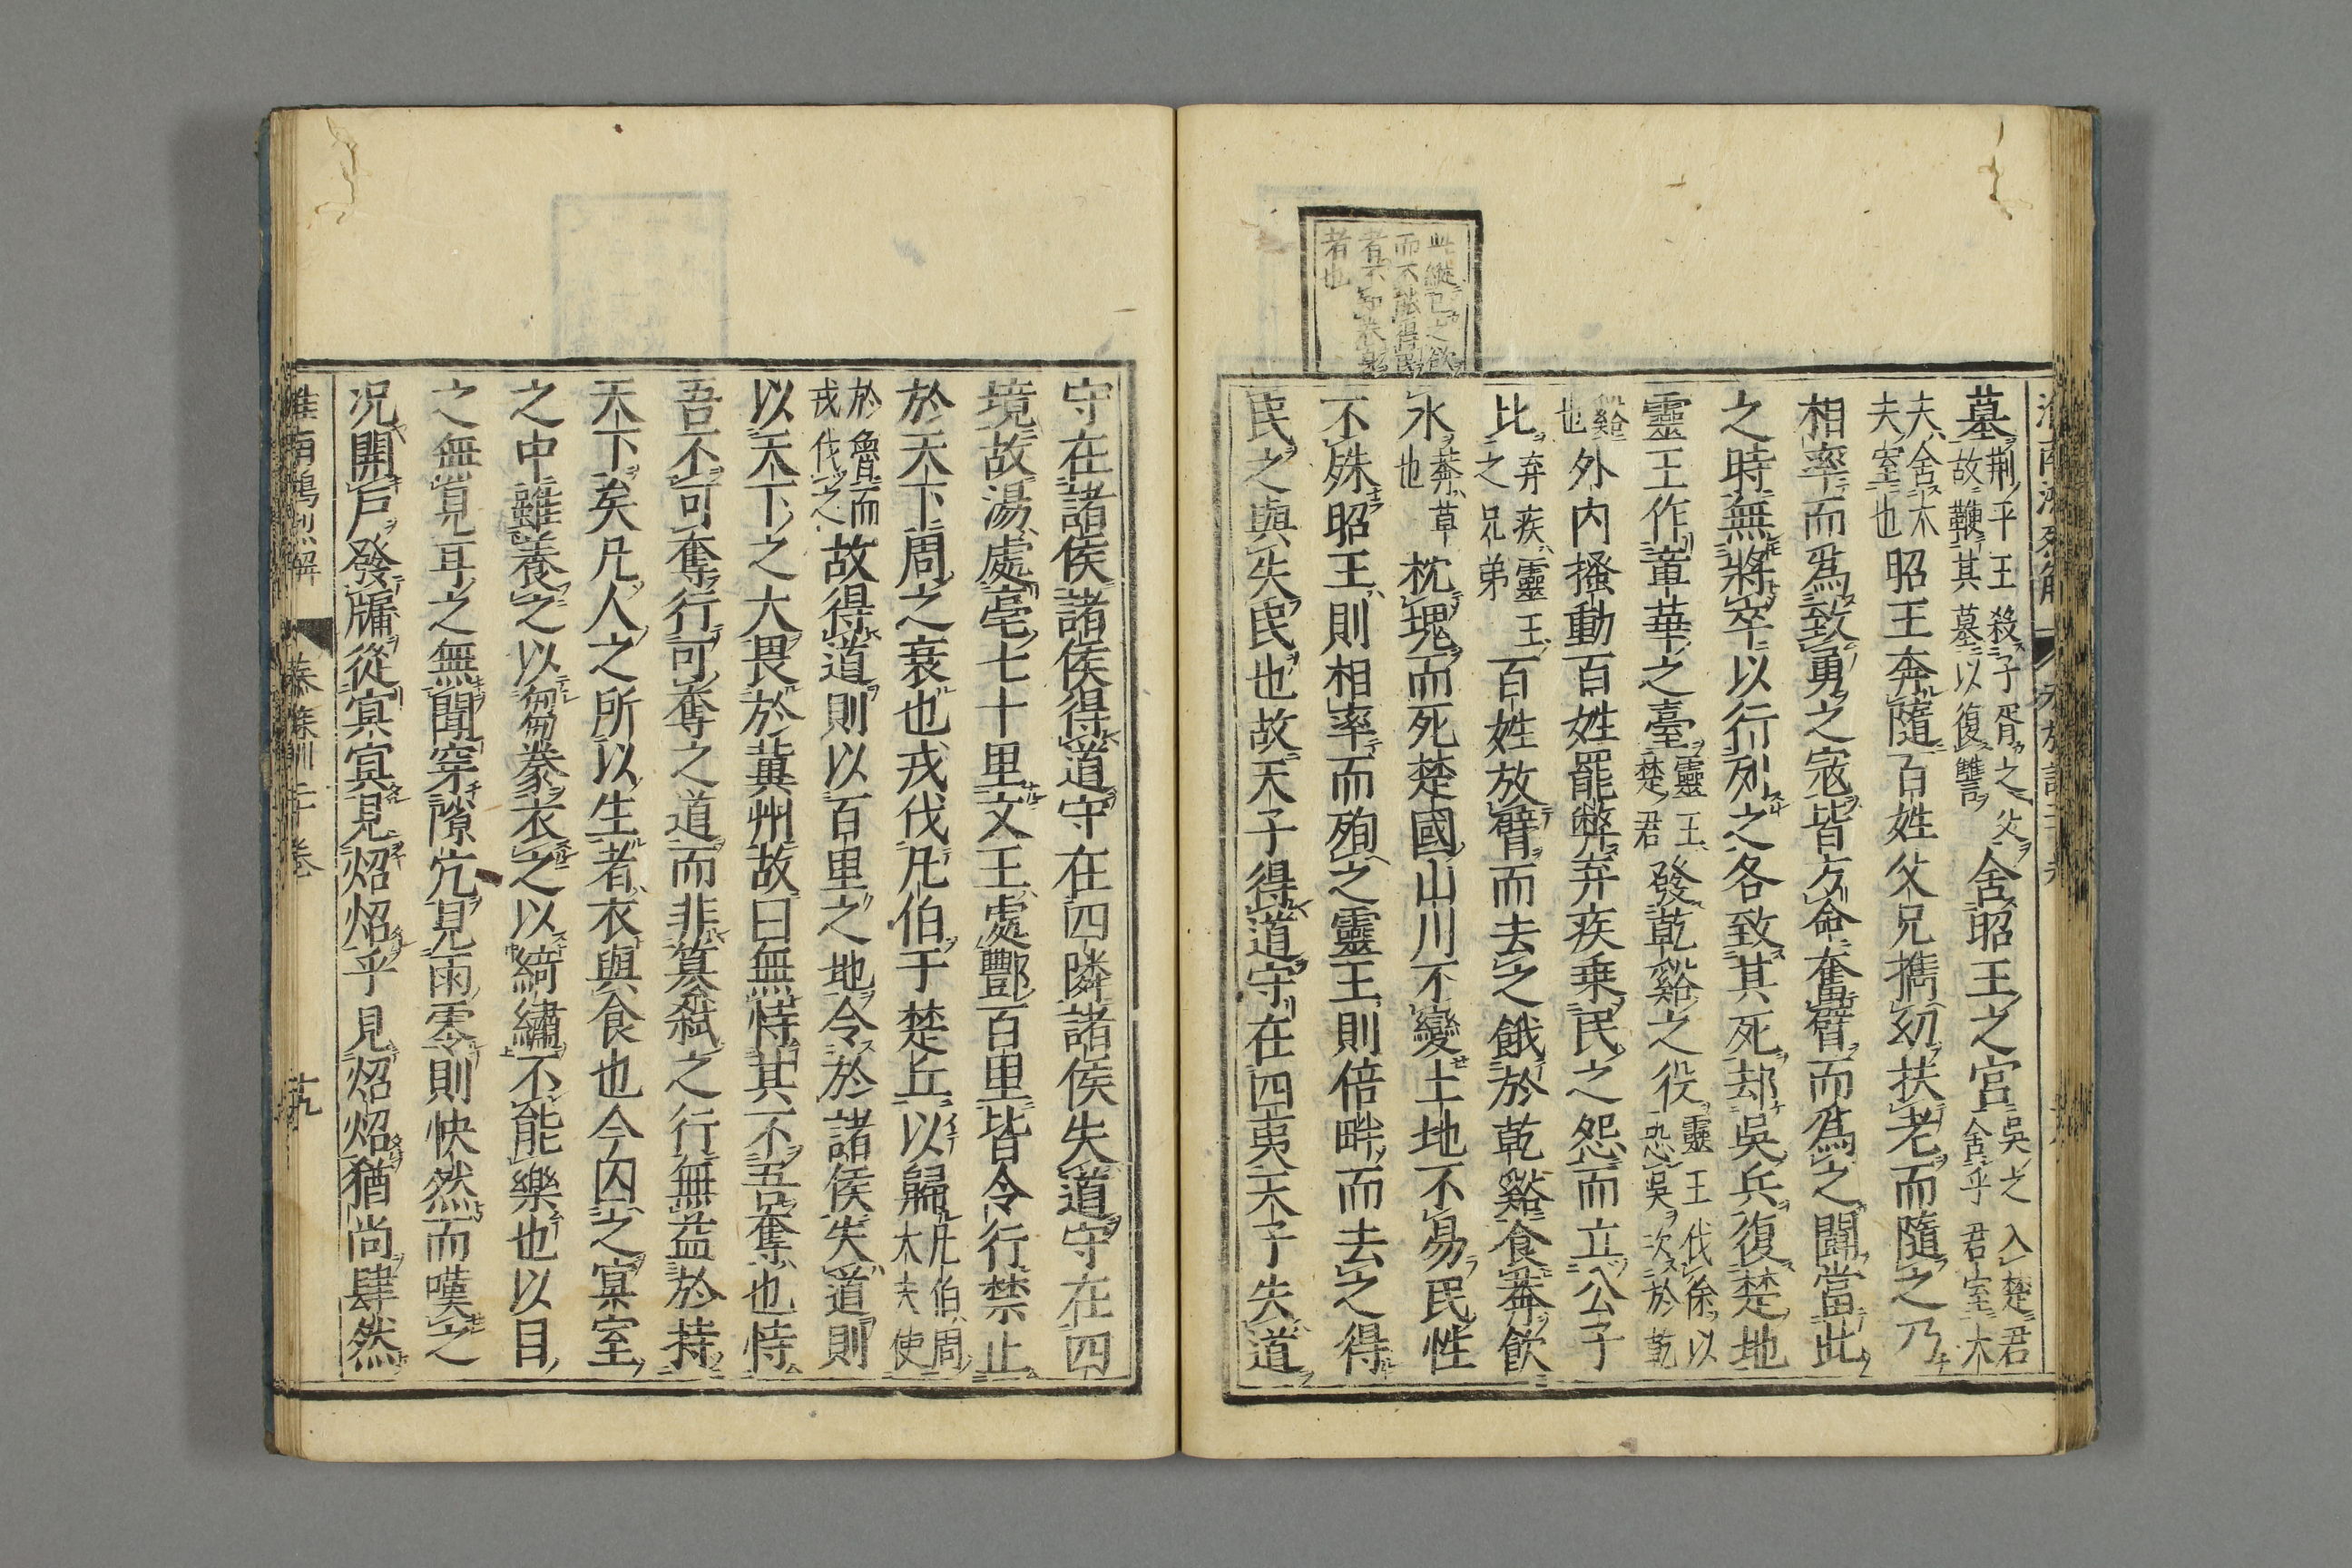 淮南鴻烈解
墓荆平王殺子胥之父
故鞭其墓以復讐舍昭王之宮吳之入楚君
舍乎君室大
夫舍大
夫室也昭王奔隨百姓父兄攜幼扶老而隨之乃
相率而爲致勇之寇皆方命奮臂而爲之鬪當此
之時無將卒以行列之各致其死却吳兵復楚地
靈王作章華之臺靈王
楚君發乾谿之役靈王伐徐以
恐吳次於乾
谿
也外内搔動百姓罷弊弃疾乗民之怨而立公子
比弃疾靈王
之兄弟百姓放臂而去之餓於乾谿食莽飲
水莽草
也枕塊而死楚國山川不變土地不易民性
不殊昭王則相率而殉之靈王則倍畔而去之得
民之與失民也故天子得道守在四夷天子失道
此縱己之欲
而不能得民
者也
守在諸侯諸侯得道守在四隣諸侯失道守在四
境故湯處亳七十里文王處酆百里皆令行禁止
於天下周之衰也戎伐凡伯于楚丘以歸凡伯周
大夫使
於魯而
戎伐之故得道則以百里之地令於諸侯失道則
以天下之大畏於冀州故曰無恃其不吾奪也恃
吾不可奪行可奪之道而非簒弑之行無益於持
天下矣凡人之所以生者衣與食也今囚之冥室
之中雖養之以芻豢衣之以綺繡不能樂也以目
之無見耳之無聞穿隙穴見雨零則快然而嘆之
况開戶發牖從冥冥見炤炤乎見炤炤猶尚肆然
淮南鴻烈解 泰族訓二十卷 十九